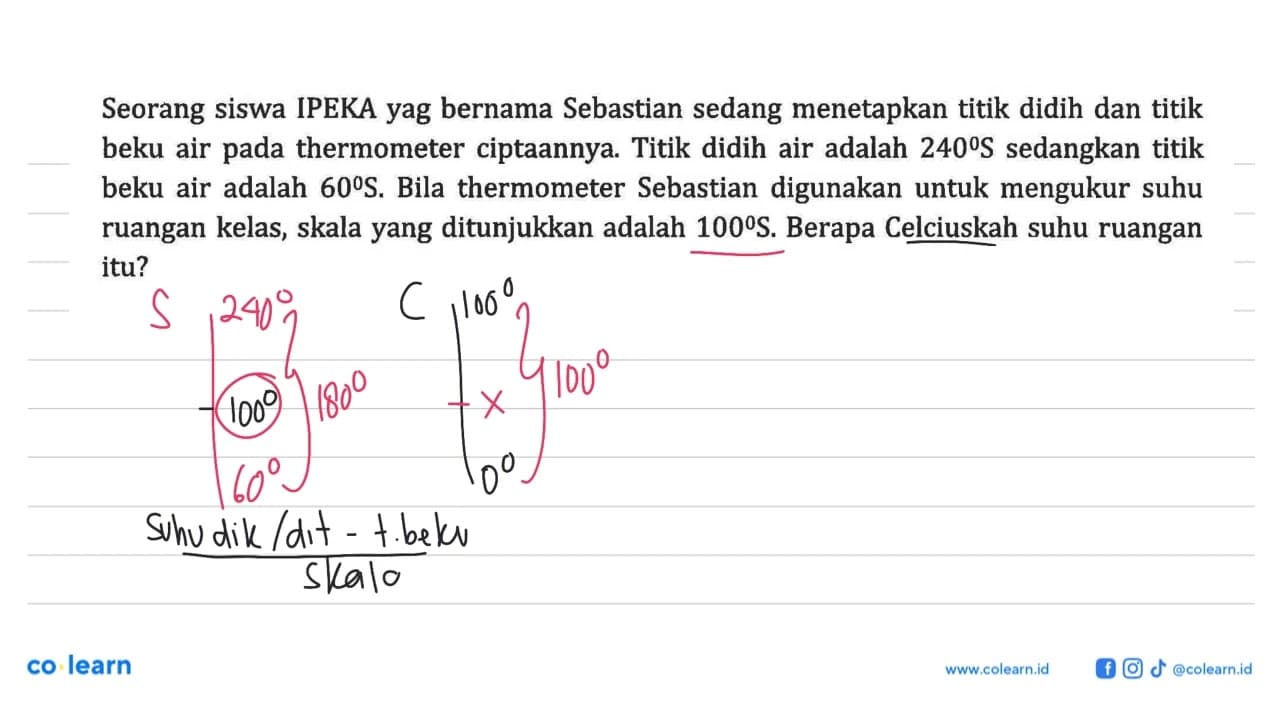 Seorang siswa IPEKA yag bernama Sebastian sedang menetapkan titik didih dan titik
beku air pada thermometer ciptaannya. Titik didih air adalah 240⁰S sedangkan titik
beku air adalah 60⁰S. Bila thermometer Sebastian digunakan untuk mengukur suhu
ruangan kelas, skala yang ditunjukkan adalah 100⁰S. Berapa Celciuskah suhu ruangan
itu?
S 240⁰ C 100⁰
100⁰ 180⁰ x 100⁰
60⁰ 0⁰
Suhu dik/dit - t.beku
skala
co learn
www.colearn.id @colearn.id